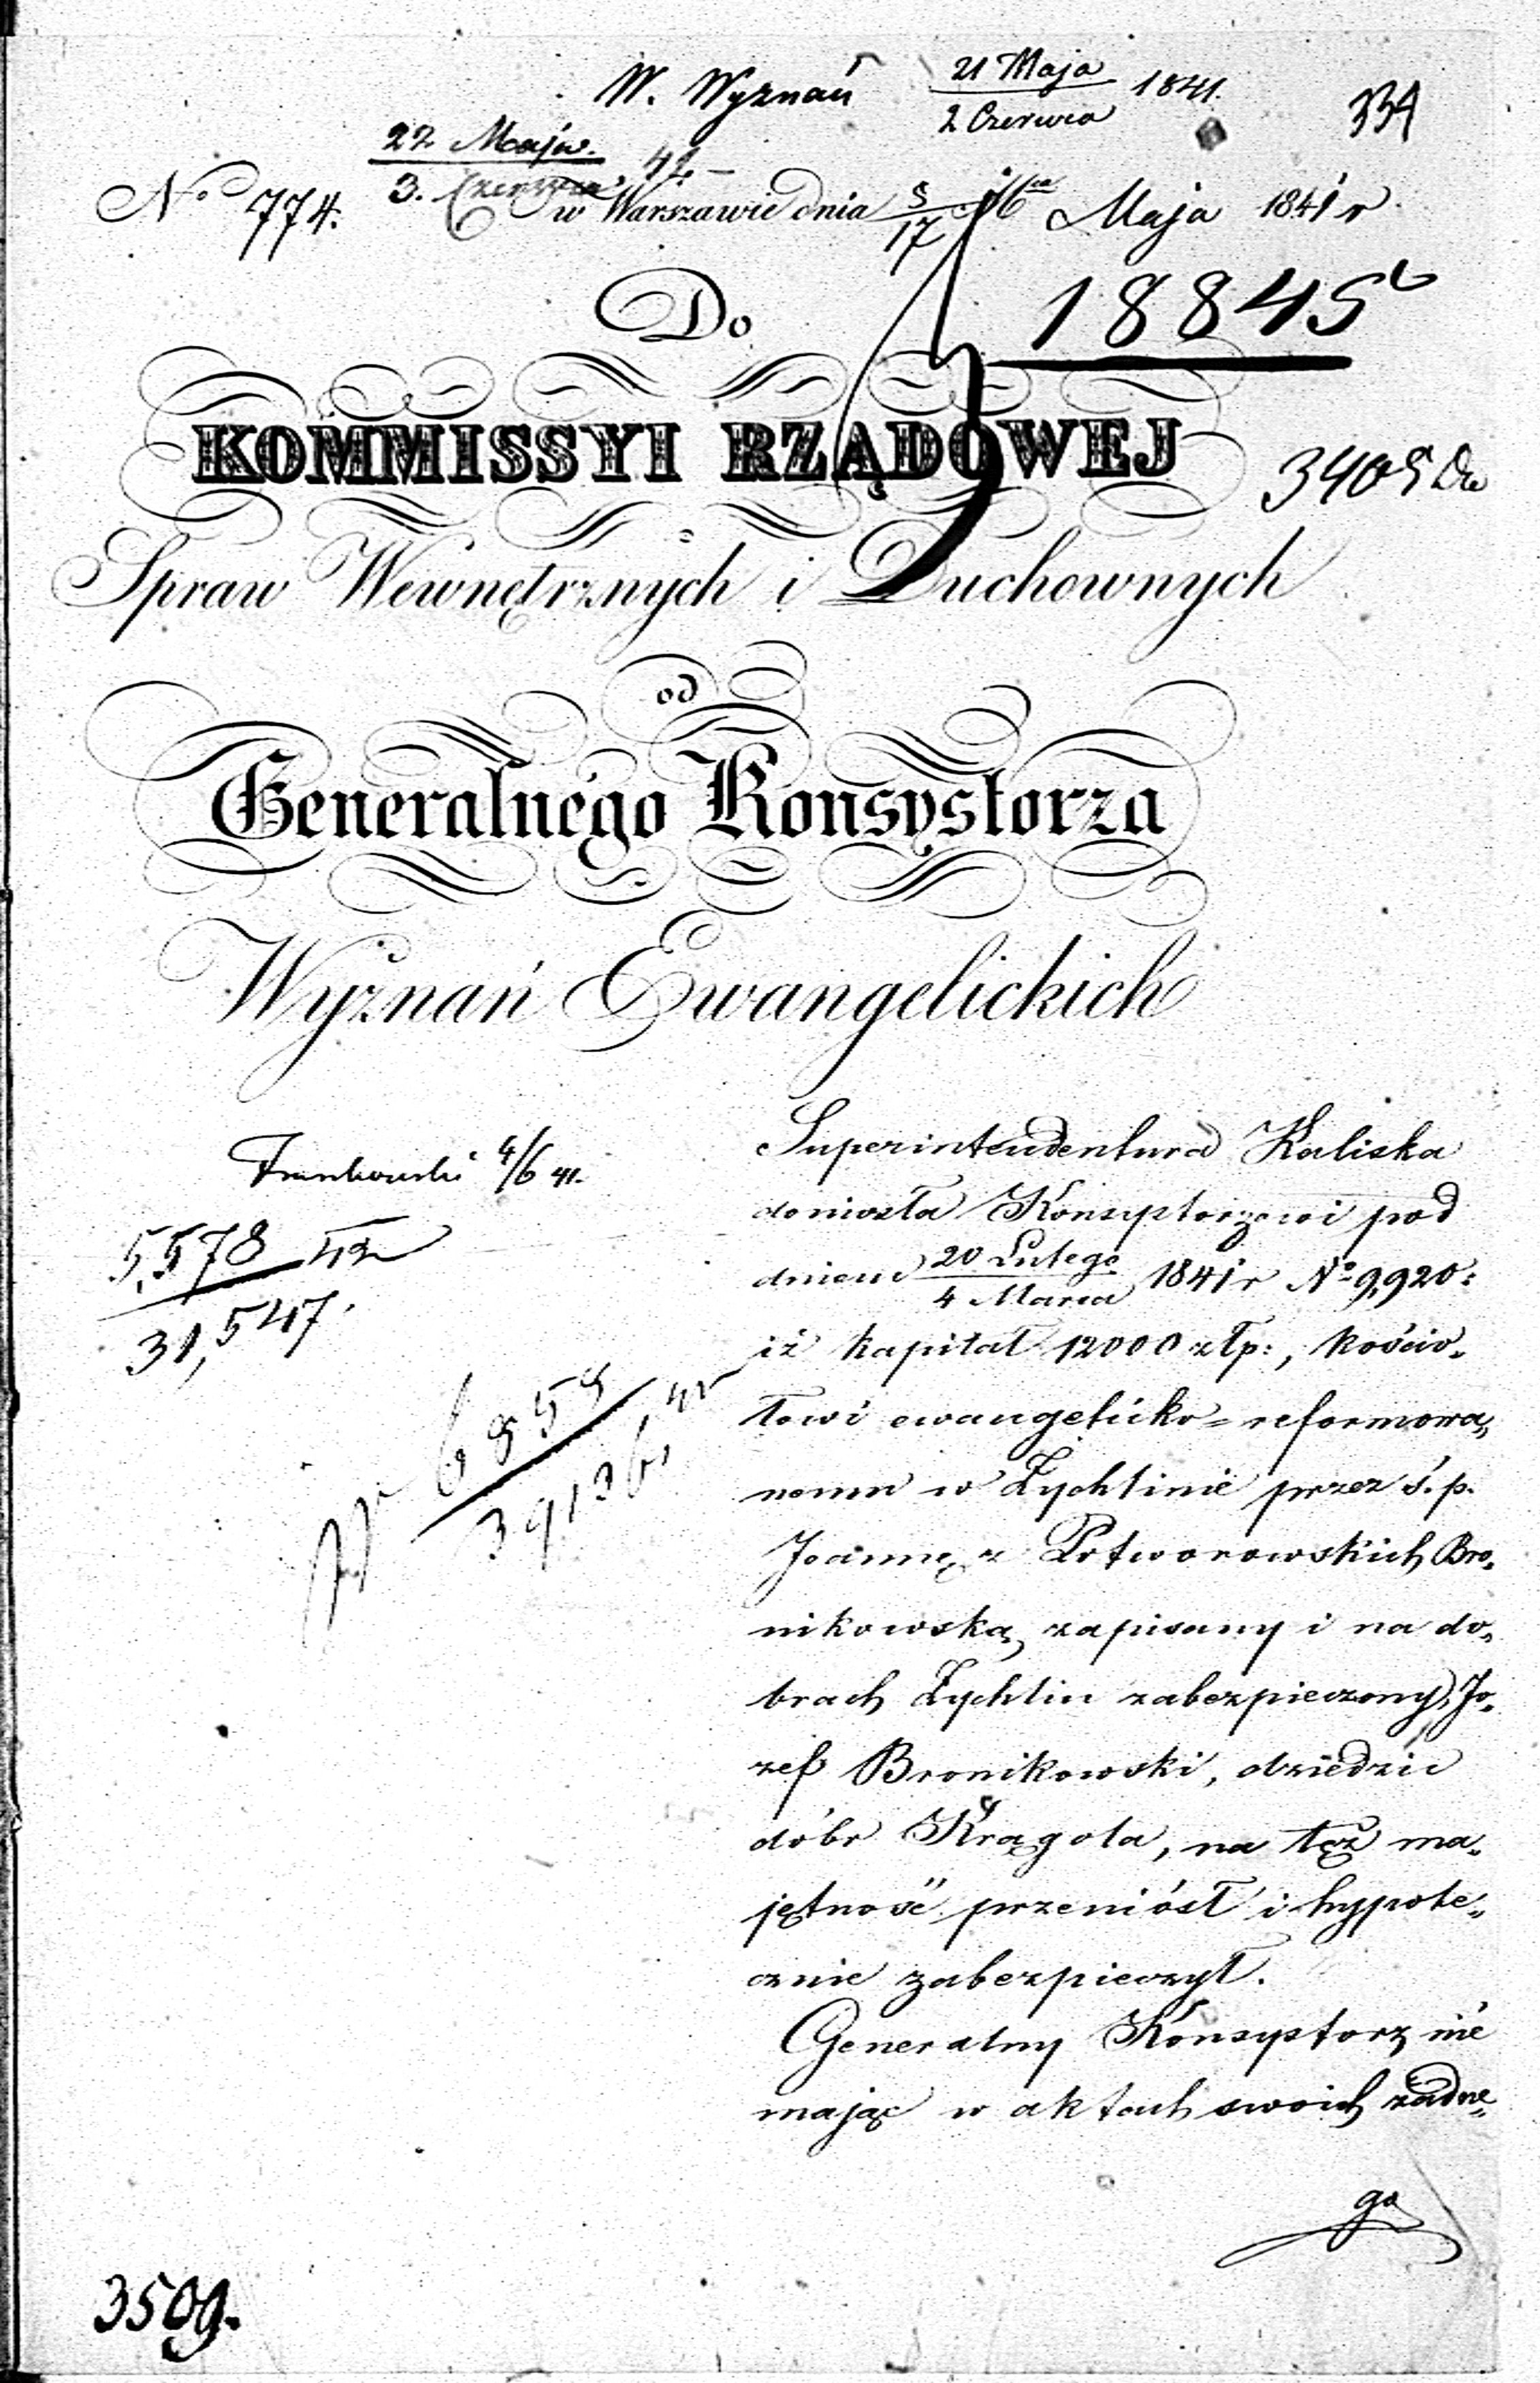 W. Wyznań 21 Maja / 2 Czerwca 1841.
334
22 Maja / 3. Czerwca 41
No 774. w Warszawie dnia 5/17 Maja 1841 r
Do
18845
KOMMISSYI RZĄDOWEJ
3405
Spraw Wewnętrznych i Duchownych
od
Generalnego Konsystorza
Wyznań Ewangelickich
4/6 41.
5,578
31,547.
6959
39136,
Superintendentura Kaliska
doniosła Konsystorzowi pod
dniem 20 Lutego / 4 Marca 1841 r No 9,920:
iż kapitał 12000 złp:, kościo„
łowi ewangelicko=reformowa„
nemu w Żychlinie przez ś. p.
Joannę z Potworowskich Bro„
nikowską, zapisany i na do„
brach Żychlin zabezpieczony, Jó„
zef Bronikowski, dziedzic
dóbr Krągola, na tęż ma„
jętność przeniósł i hypote„
cznie zabezpieczył.
Generalny Konsystorz nie
mając w aktach swoich żadne„
go
3509.